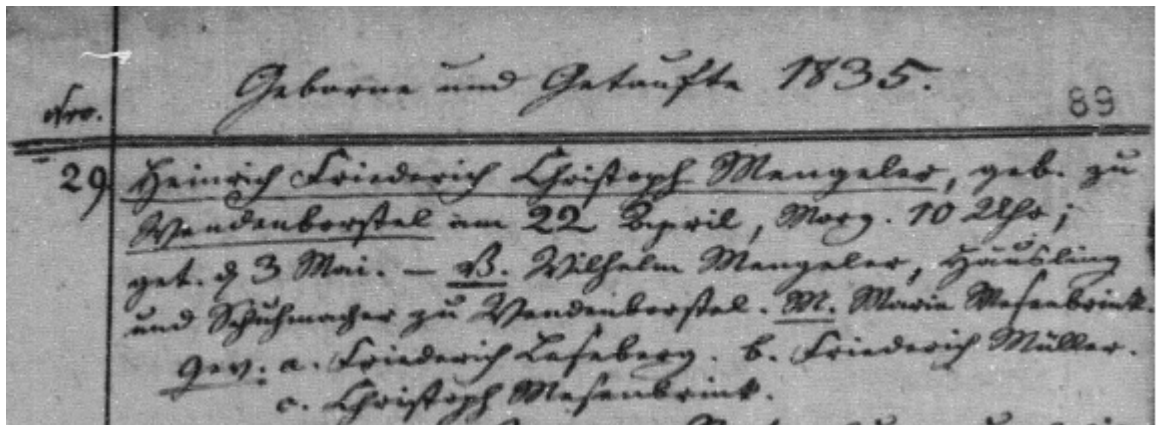 Geborne und Getaufte 1835.
Nro.
89
29 Heinrich Friederich Christoph Mengeler, geb. zu
Wendenborstel am 22 April, Morg. 10 Uhr;
get. d 3 Mai. — V. Wilhelm Mengeler, Häusling
und Schuhmacher zu Wendenborstel. M. Marie Mesenbrink.
Gev: a. Friederich Leseberg. b. Friederich Müller.
c. Christoph Mesenbrink.